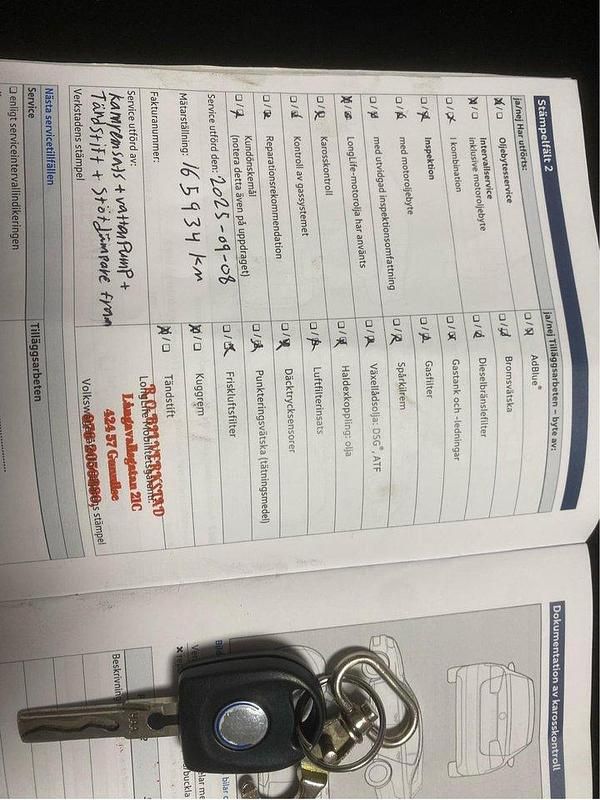 Stämpelfält 2
ja/nej Har utförts:
Oljebytesservice
Intervallservice
inklusive motoroljebyte
I kombination
Inspektion
med motoroljebyte
med utvidgad inspektionsomfattning
LongLife-motorolja har använts
Karosskontroll
Kontroll av gassystemet
Reparationsrekommendation
Kundönskemål
(notera detta även på uppdraget)
Service utförd den: 2025-09-08
Mätarställning: 165934 km
Fakturanummer:
Service utförd av:
kamremsats + vattenpump +
Tändstift + stötdämpare fram
Verkstadens stämpel
Nästa servicetillfällen
Service
enligt serviceintervallindikeringen
ja/nej Tilläggsarbeten – byte av:
AdBlue®
Bromsvätska
Dieselbränslefilter
Gastank och -ledningar
Gasfilter
Spårkilrem
Växellådsolja: DSG®, ATF
Haldexkoppling: olja
Luftfilterinsats
Däcktrycksensorer
Punkteringsvätska (tätningsmedel)
Friskluftsfilter
Kuggrem
Tändstift
BILVERKSTAD
21C
424 57 Gunnilse
stämpel
Tilläggsarbeten
Dokumentation av karosskontroll
Beskrivning